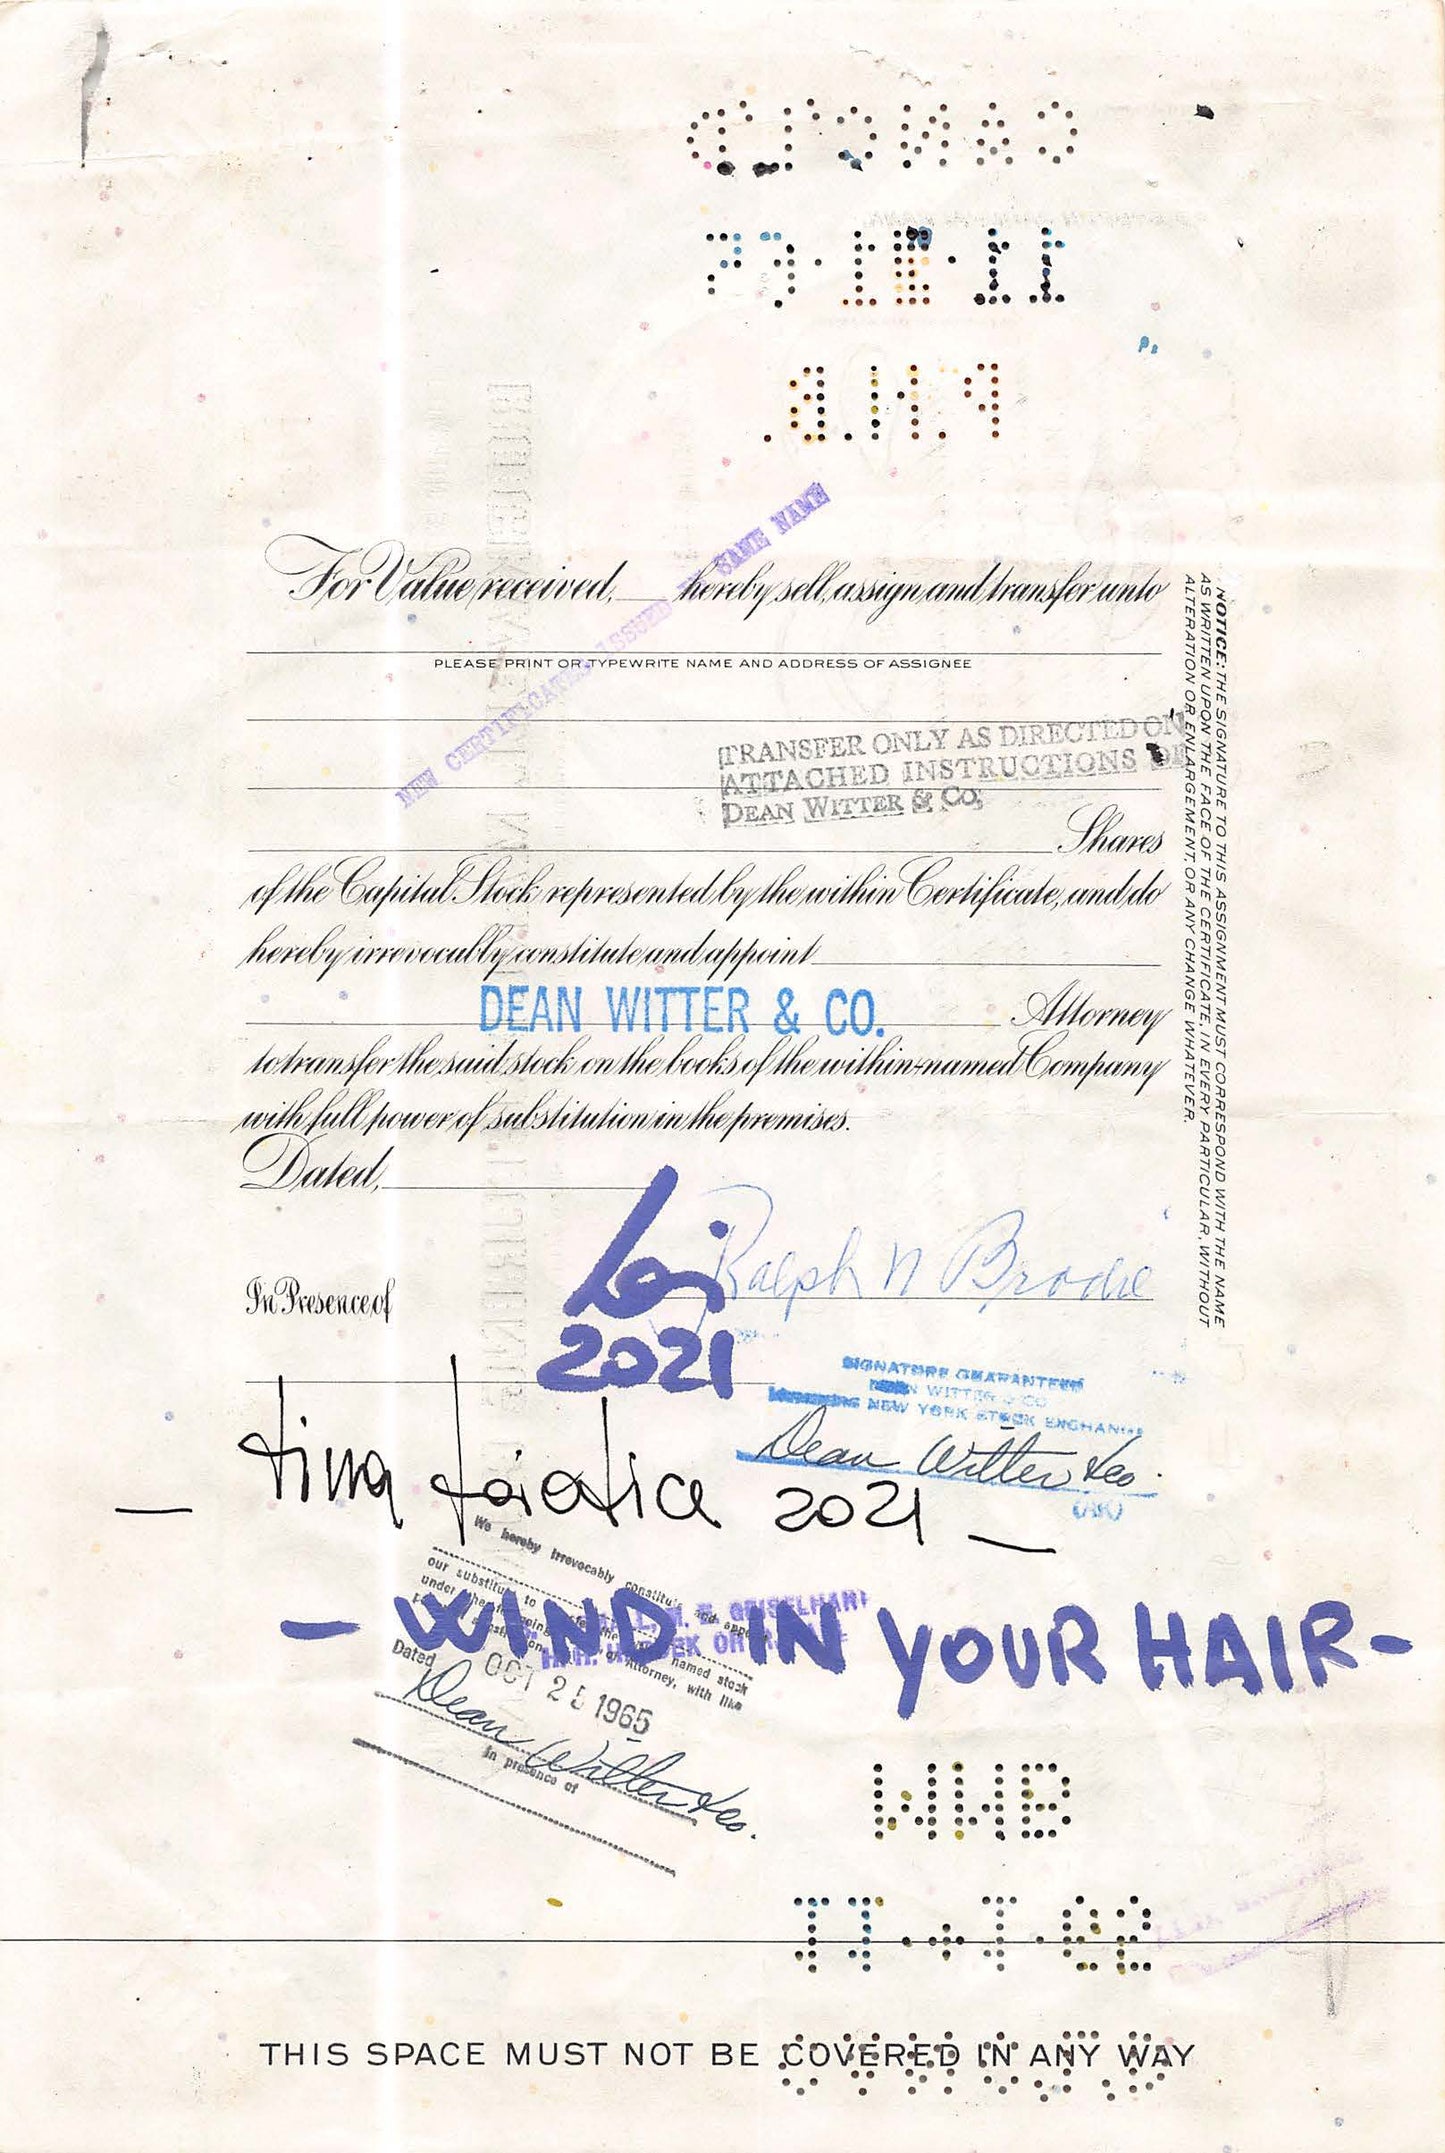 For Value received, hereby sell, assign and transfer unto
PLEASE PRINT OR TYPEWRITE NAME AND ADDRESS OF ASSIGNEE
NEW CERTIFICATES ISSUED SAME NAME
TRANSFER ONLY AS DIRECTED ON
ATTACHED INSTRUCTIONS OF
DEAN WITTER & CO.
Shares
of the Capital Stock represented by the within Certificate, and do
hereby irrevocably constitute and appoint
DEAN WITTER & CO. Attorney
to transfer the said stock on the books of the within-named Company
with full power of substitution in the premises.
Dated,
NOTICE: THE SIGNATURE TO THIS ASSIGNMENT MUST CORRESPOND WITH THE NAME
AS WRITTEN UPON THE FACE OF THE CERTIFICATE, IN EVERY PARTICULAR, WITHOUT
ALTERATION OR ENLARGEMENT, OR ANY CHANGE WHATEVER.
Ralph N Brodie
In Presence of
2021
SIGNATURE GUARANTEED
WITTER & CO
NEW YORK STOCK EXCHANGE
Dean Witter & Co.
2021
We hereby irrevocably constitute and
our substitute to named stock
under the foregoing of Attorney, with like
Dated OCT 25 1965
Dean Witter & Co.
In presence of
- WIND IN YOUR HAIR -
WHB
THIS SPACE MUST NOT BE COVERED IN ANY WAY